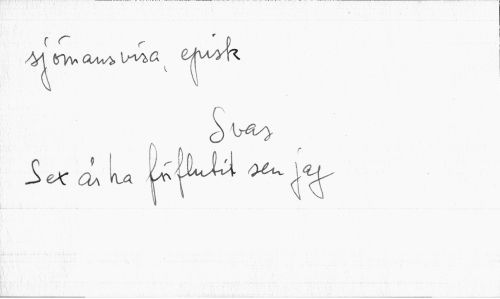 sjömansvisa, episk
Svas
Sex år ha förflutit sen jag